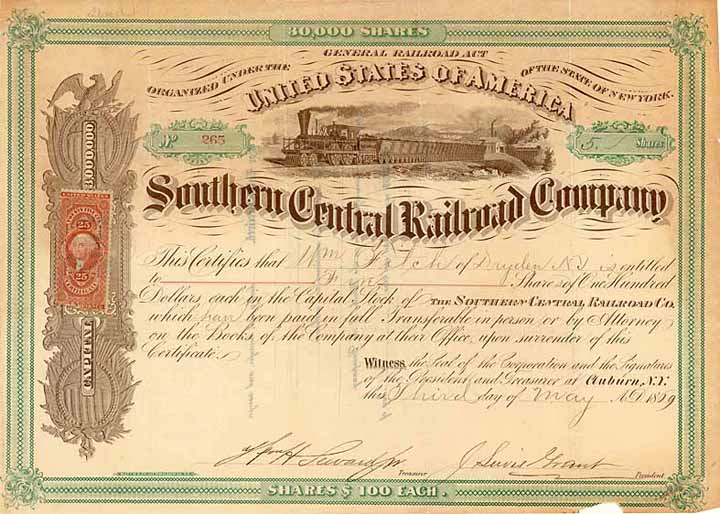 30,000 SHARES
GENERAL RAILROAD ACT
ORGANIZED UNDER THE OF THE STATE OF NEW YORK.
UNITED STATES OF AMERICA
No 265
5 Shares
Southern Central Railroad Company
CAPITAL 3,000,000
25 25
This Certifies that Wm F of Dryden N.Y. is entitled
to Five Shares of One Hundred
Dollars, each on the Capital Stock of THE SOUTHERN CENTRAL RAILROAD CO.
which has been paid in full Transferable in person or by Attorney
on the Books of the Company at their Office, upon surrender of this
Certificate.
Witness, the Seal of the Corporation and the Signatures
of the President and Treasurer at Auburn, N.Y.
this Third day of May A.D. 18
Wm H Seward Jr Treasurer
J Lewis Grant President
SHARES $ 100 EACH.